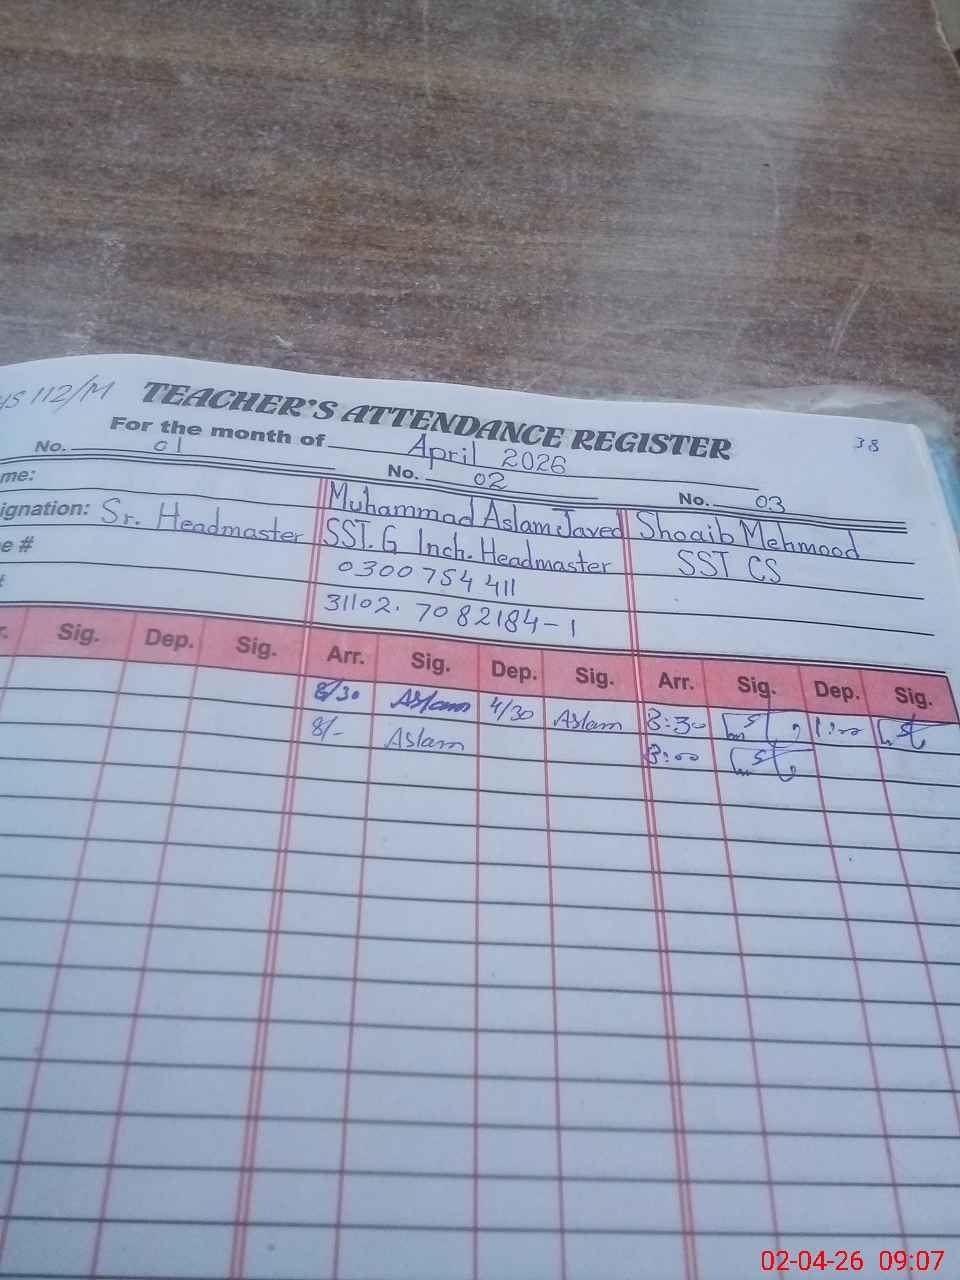 HS 112/M
TEACHER'S ATTENDANCE REGISTER
38
For the month of April 2026
No. 01 No. 02 No. 03
me: Muhammad Aslam Javed Shoaib Mehmood
ignation: Sr. Headmaster SST.G Inch. Headmaster SST CS
e # 0300 754 411
31102. 7082184-1
r. Sig. Dep. Sig. Arr. Sig. Dep. Sig. Arr. Sig. Dep. Sig.
8/30 Aslam 4/30 Aslam 8:30 1:00
8/- Aslam 8:00
02-04-26 09:07